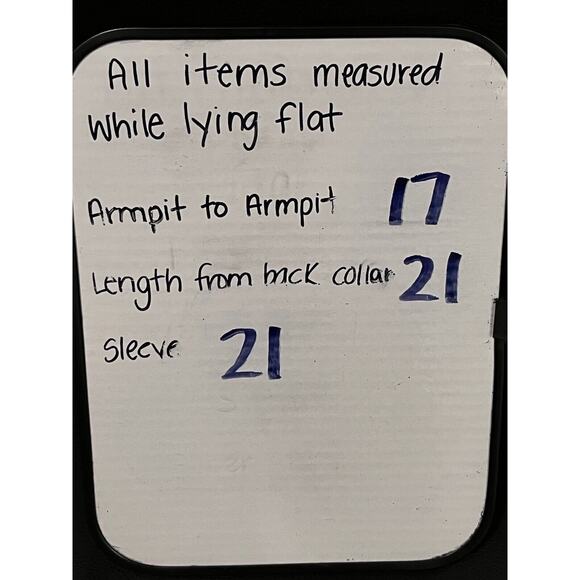 All items measured
while lying flat
Armpit to Armpit 17
Length from back collar 21
Sleeve 21